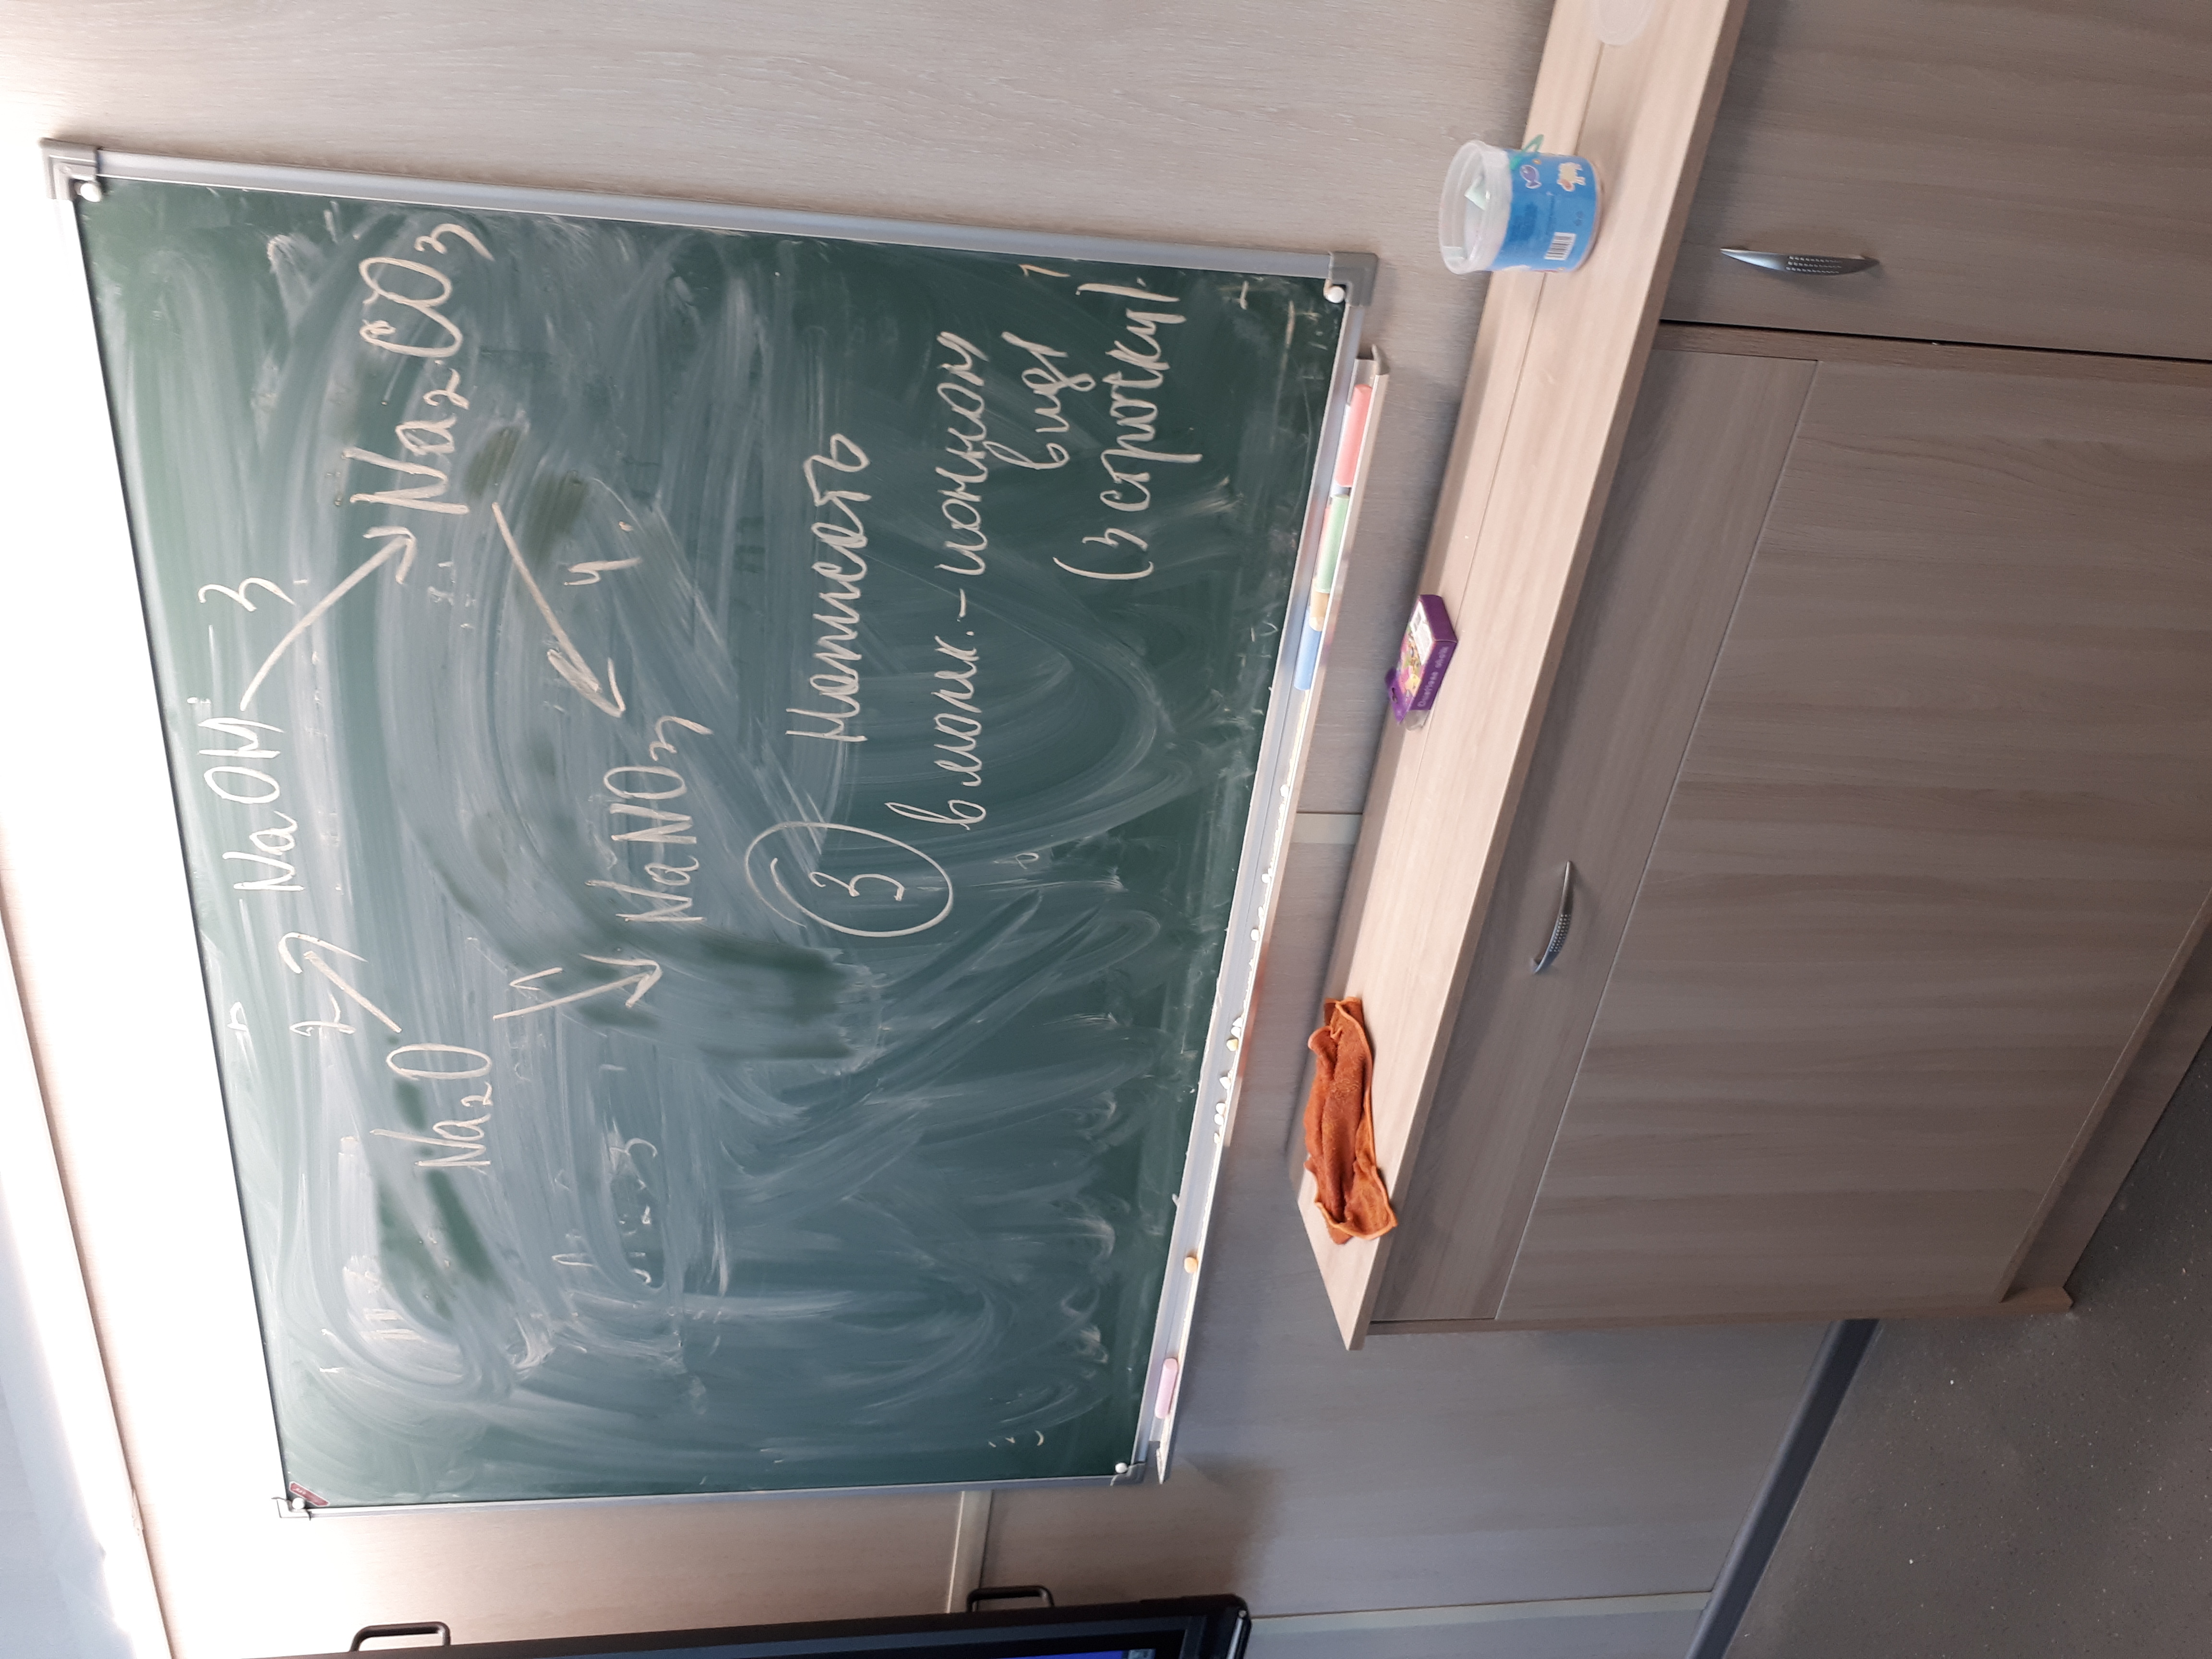 NaOH
3
2
Na₂O
Na₂CO₃
1
4.
NaNO₃
3 Написать
в молк.-ионном
виде
(3 строки).